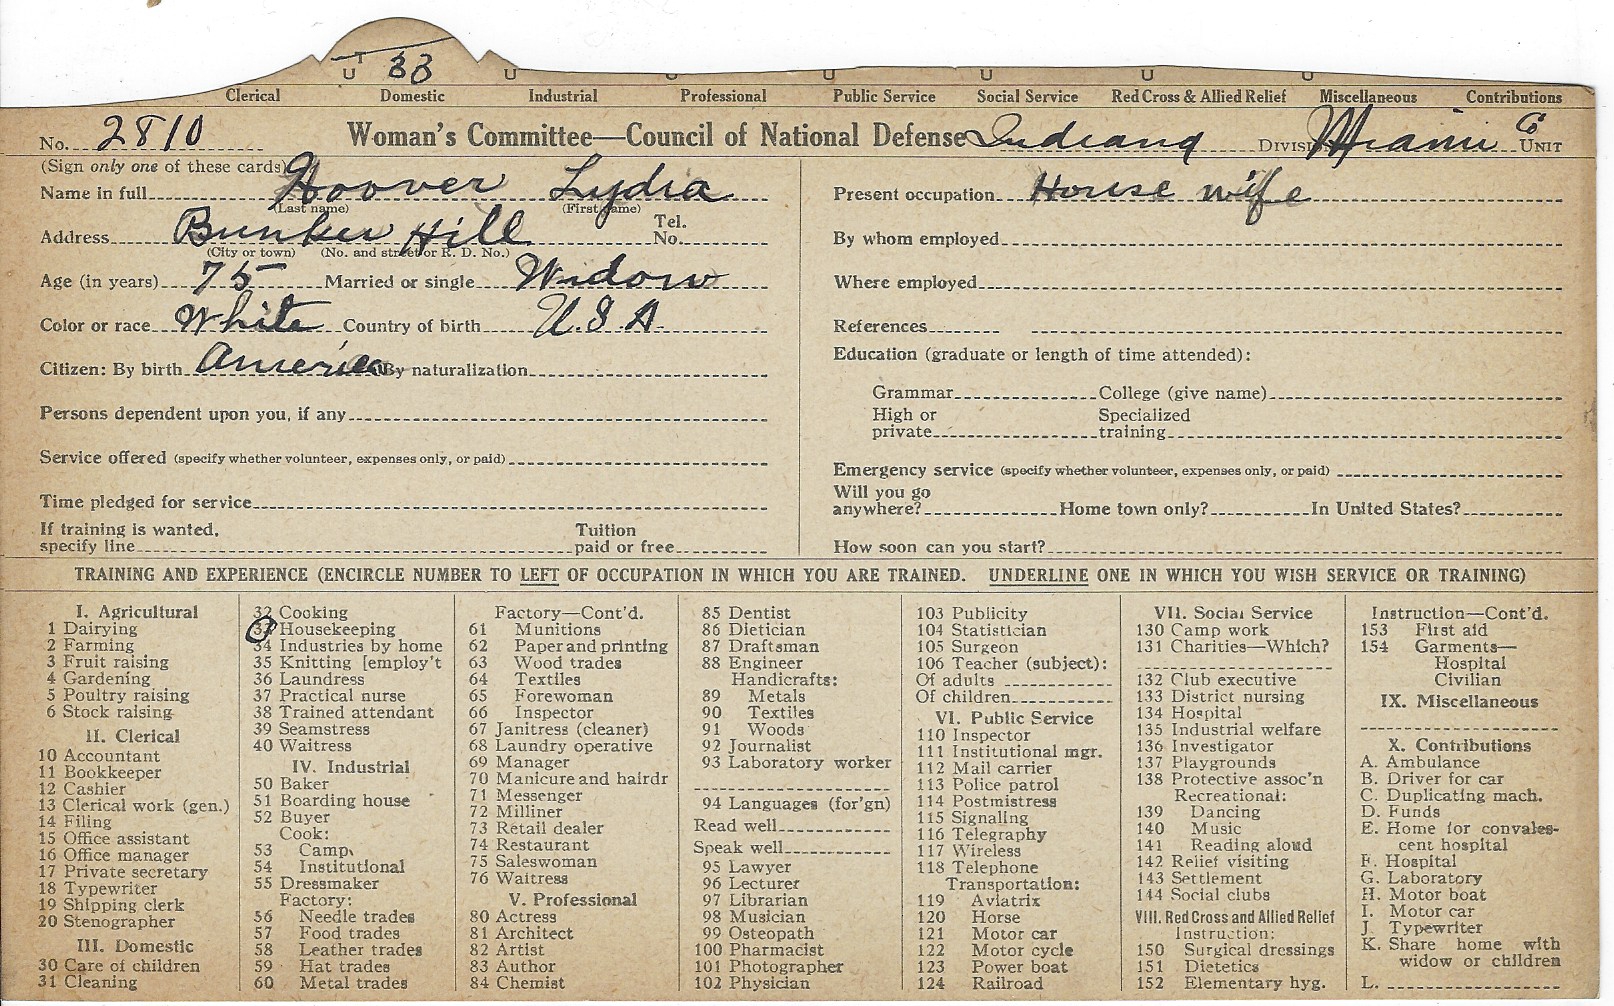 33
U U U U U U U
Clerical Domestic Industrial Professional Public Service Social Service Red Cross & Allied Relief Miscellaneous Contributions
No. 2810 Woman's Committee—Council of National Defense Indiana Division Miami Co Unit
(Sign only one of these cards)
Name in full Hoover Lydia
(Last name) (First name)
Address Bunker Hill Tel. No.
(City or town) (No. and street or R. D. No.)
Age (in years) 75 Married or single Widow
Color or race White Country of birth U.S.A.
Citizen: By birth America By naturalization
Persons dependent upon you, if any
Service offered (specify whether volunteer, expenses only, or paid)
Time pledged for service
If training is wanted, specify line Tuition paid or free
Present occupation House wife
By whom employed
Where employed
References
Education (graduate or length of time attended):
Grammar College (give name)
High or private Specialized training
Emergency service (specify whether volunteer, expenses only, or paid)
Will you go anywhere? Home town only? In United States?
How soon can you start?
TRAINING AND EXPERIENCE (ENCIRCLE NUMBER TO LEFT OF OCCUPATION IN WHICH YOU ARE TRAINED. UNDERLINE ONE IN WHICH YOU WISH SERVICE OR TRAINING)
I. Agricultural
1 Dairying
2 Farming
3 Fruit raising
4 Gardening
5 Poultry raising
6 Stock raising
II. Clerical
10 Accountant
11 Bookkeeper
12 Cashier
13 Clerical work (gen.)
14 Filing
15 Office assistant
16 Office manager
17 Private secretary
18 Typewriter
19 Shipping clerk
20 Stenographer
III. Domestic
30 Care of children
31 Cleaning
32 Cooking
33 Housekeeping
34 Industries by home
35 Knitting [employ't
36 Laundress
37 Practical nurse
38 Trained attendant
39 Seamstress
40 Waitress
IV. Industrial
50 Baker
51 Boarding house
52 Buyer
Cook:
53 Camp
54 Institutional
55 Dressmaker
Factory:
56 Needle trades
57 Food trades
58 Leather trades
59 Hat trades
60 Metal trades
Factory—Cont'd.
61 Munitions
62 Paper and printing
63 Wood trades
64 Textiles
65 Forewoman
66 Inspector
67 Janitress (cleaner)
68 Laundry operative
69 Manager
70 Manicure and hairdr
71 Messenger
72 Milliner
73 Retail dealer
74 Restaurant
75 Saleswoman
76 Waitress
V. Professional
80 Actress
81 Architect
82 Artist
83 Author
84 Chemist
85 Dentist
86 Dietician
87 Draftsman
88 Engineer
Handicrafts:
89 Metals
90 Textiles
91 Woods
92 Journalist
93 Laboratory worker
94 Languages (for'gn)
Read well
Speak well
95 Lawyer
96 Lecturer
97 Librarian
98 Musician
99 Osteopath
100 Pharmacist
101 Photographer
102 Physician
103 Publicity
104 Statistician
105 Surgeon
106 Teacher (subject):
Of adults
Of children
VI. Public Service
110 Inspector
111 Institutional mgr.
112 Mail carrier
113 Police patrol
114 Postmistress
115 Signaling
116 Telegraphy
117 Wireless
118 Telephone
Transportation:
119 Aviatrix
120 Horse
121 Motor car
122 Motor cycle
123 Power boat
124 Railroad
VII. Social Service
130 Camp work
131 Charities—Which?
132 Club executive
133 District nursing
134 Hospital
135 Industrial welfare
136 Investigator
137 Playgrounds
138 Protective assoc'n
Recreational:
139 Dancing
140 Music
141 Reading aloud
142 Relief visiting
143 Settlement
144 Social clubs
VIII. Red Cross and Allied Relief
Instruction:
150 Surgical dressings
151 Dietetics
152 Elementary hyg.
Instruction—Cont'd.
153 First aid
154 Garments—
Hospital
Civilian
IX. Miscellaneous
X. Contributions
A. Ambulance
B. Driver for car
C. Duplicating mach.
D. Funds
E. Home for convales-
cent hospital
F. Hospital
G. Laboratory
H. Motor boat
I. Motor car
J. Typewriter
K. Share home with
widow or children
L.